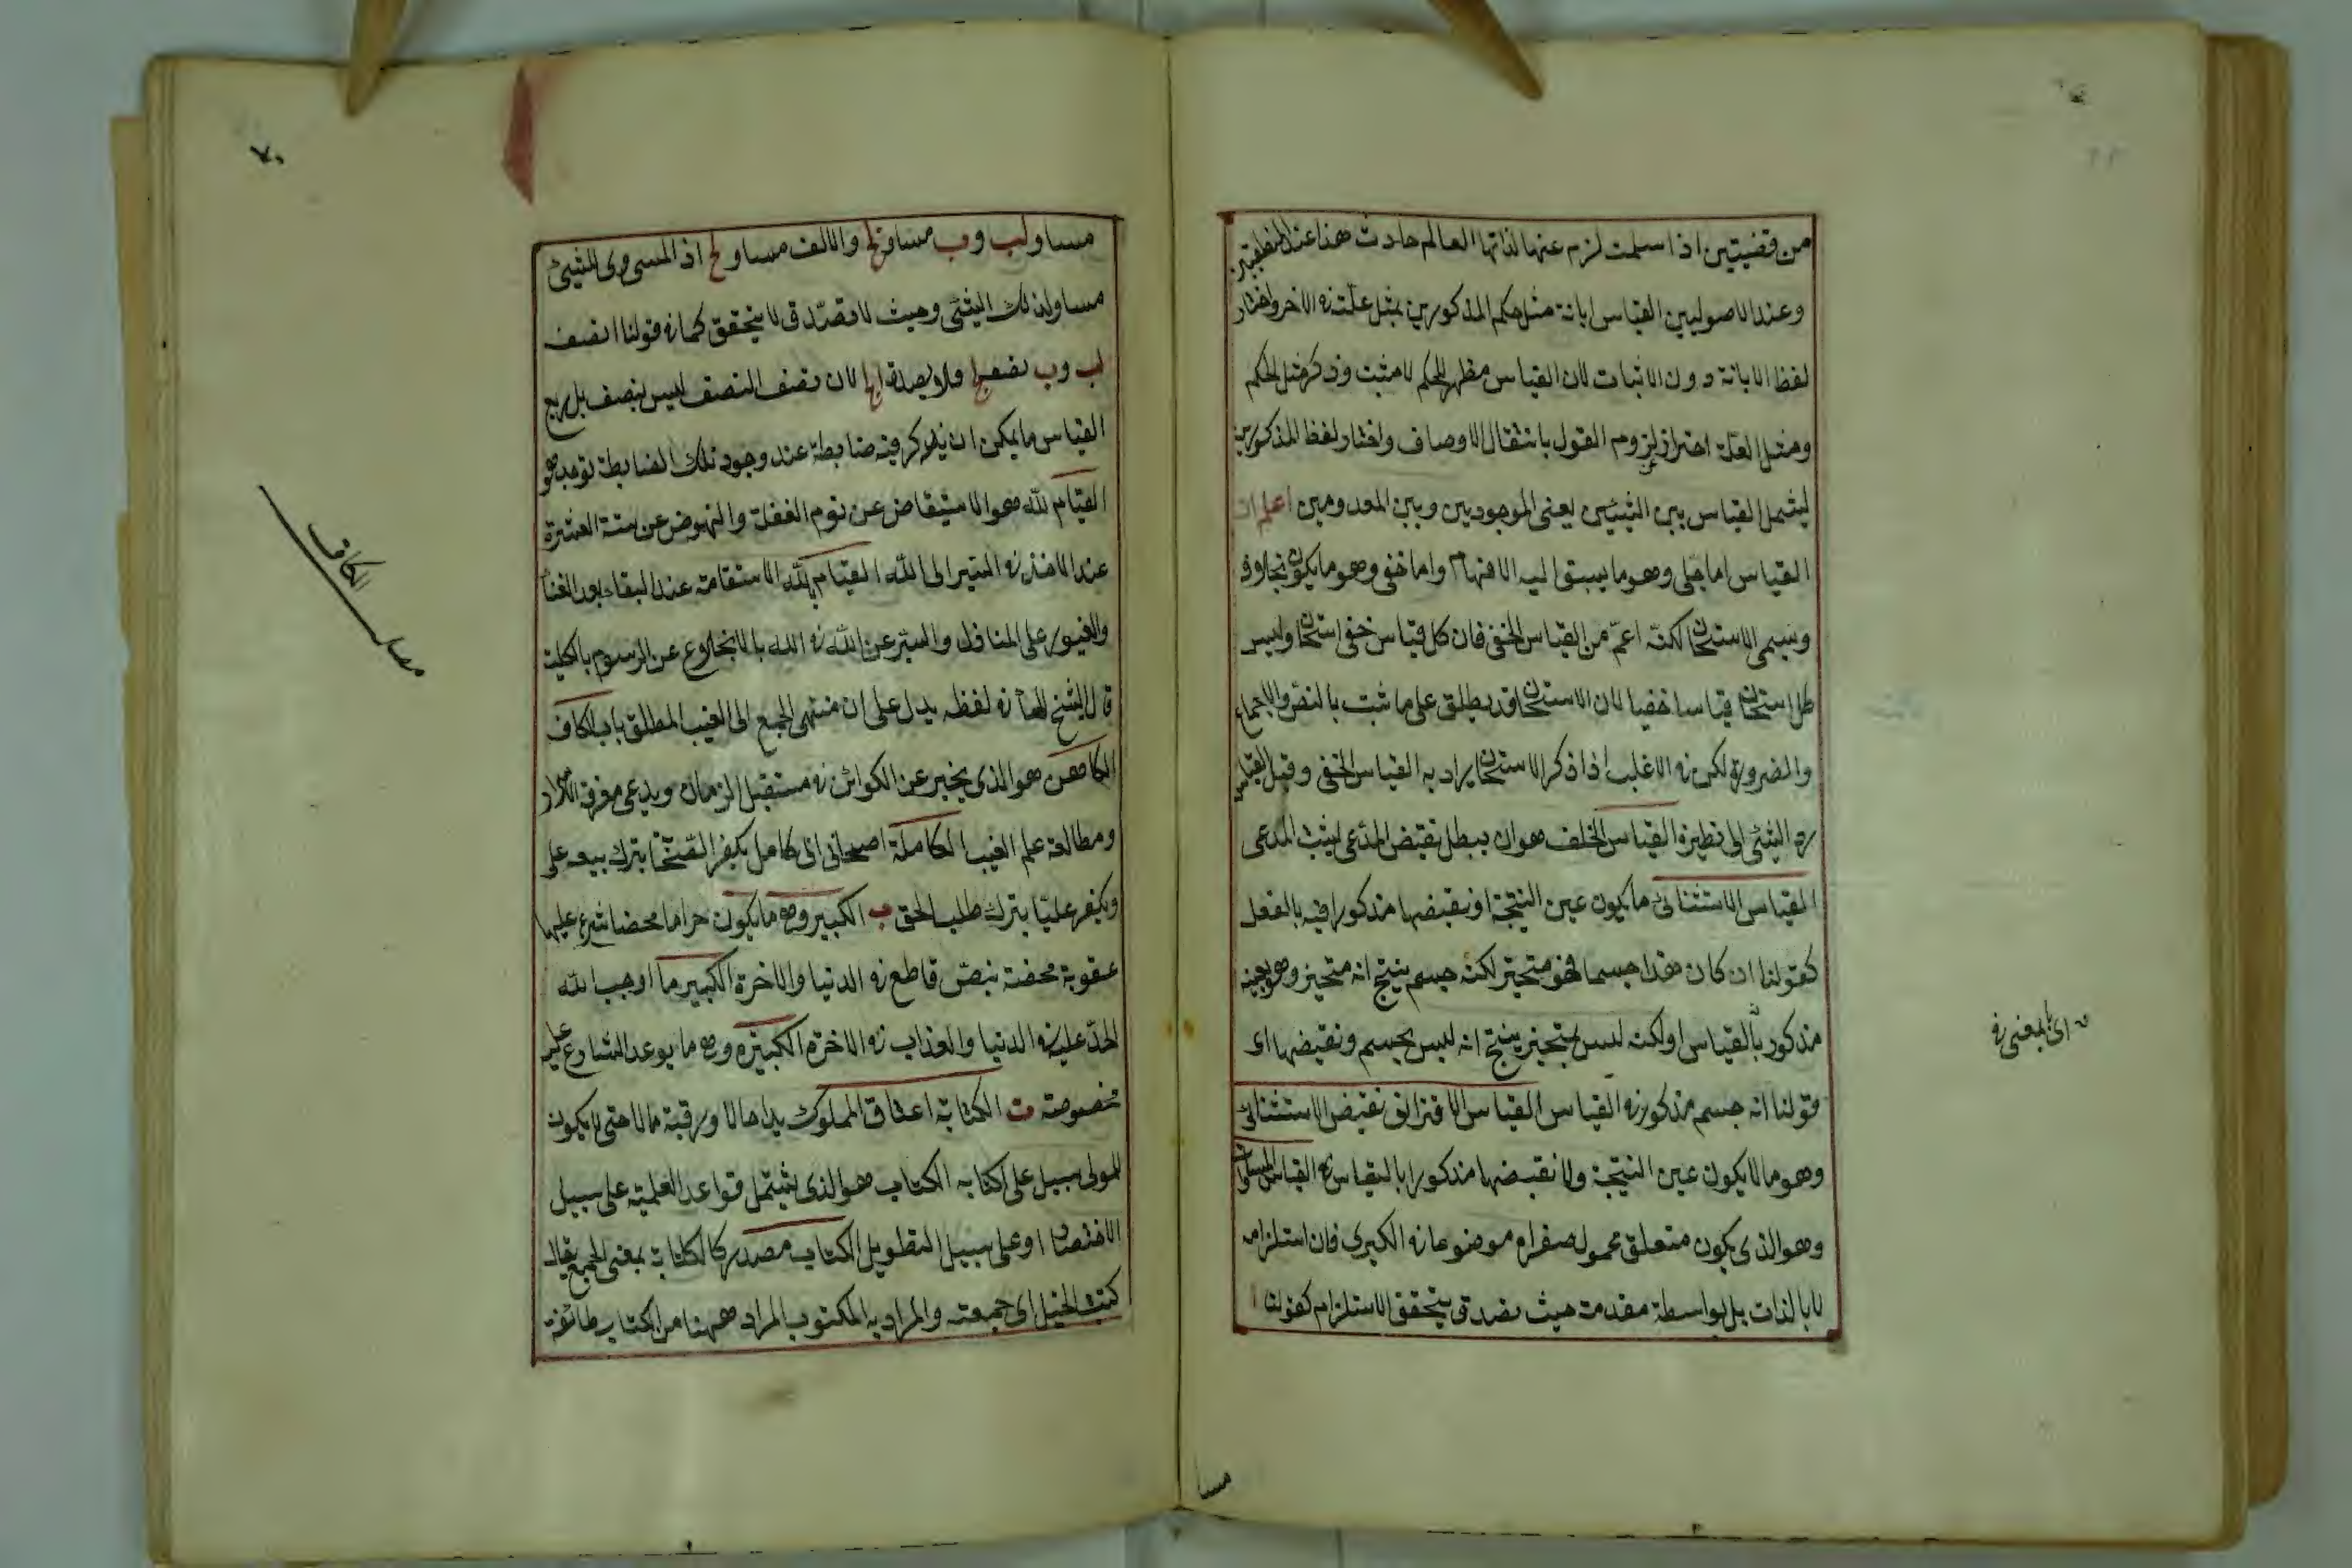 من قضيتين اذا سلمت لزم عنها لذاتها العالم حادث هذا عند المنطقيين
وعند الاصوليين القياس ابانة مثل حكم المذكورين بمثل علته فى الاخر واختار
لفظ الابانة دون الاثبات لان القياس مظهر للحكم لا مثبت وذكر مثل الحكم
ومثل العلة احتراز عن لزوم القول بانتقال الاوصاف واختار لفظ المذكورين
ليشمل القياس بين الشيئين يعنى الموجودين وبين المعدومين اعلم ان
القياس اما جلى وهو ما يسبق اليه الافهام واما خفى وهو ما يكون بخلافه
ويسمى الاستحسان لكنه اعم من القياس الخفى فان كل قياس خفى استحسان وليس
كل استحسان قياسا خفيا لان الاستحسان قد يطلق على ما ثبت بالنص والاجماع
والضرورة لكن فى الاغلب اذا ذكر الاستحسان يراد به القياس الخفى وقيل القياس
رد الشئ الى نظيره القياس الخلف هو ان يبطل نقيض المدعى ليثبت المدعى
القياس الاستثنائى ما يكون عين النتيجة او نقيضها مذكورا فيه بالفعل
كقولنا ان كان هذا جسما فهو متحيز لكنه جسم ينتج انه متحيز وهو بعينه
مذكور بالقياس او لكنه ليس بمتحيز ينتج انه ليس بجسم ونقيضها اى
قولنا انه جسم مذكور فى القياس القياس الاقترانى نقيض الاستثنائى
وهو ما لا يكون عين النتيجة ولا نقيضها مذكورا بالقياس القياس المساوات
وهو الذى يكون متعلق محمول صغراه موضوعا فى الكبرى فان استلزامه
لا بالذات بل بواسطة مقدمة حيث تصدق يتحقق الاستلزام كقولنا ا
اى بالمعنى فى
مسا
٧٠
مساو لب وب مساو لج والالف مساو لج اذ المساوى للشئ
مساو لذلك الشئ وحيث لا تصدق لا يتحقق كما فى قولنا ا نصف
لب وب نصف لج فلا يصدق ا لج لان نصف النصف ليس بنصف بل ربع
القياس ما يمكن ان يذكر فيه ضابطة عند وجود تلك الضابطة توجد هو
القيام لله هو الاستيقاض عن نوم الغفلة والنهوض عن سنة الفترة
عند الاخذ فى السير الى الله القيام بالله الاستقامة عند البقاء بعد الفنا
والعبور على المنازل والسير عن الله فى الله بالانخلاع عن الرسوم بالكلية
قال الشيخ الهأ فى لفظه يدل على ان منتهى الجمع الى الغيب المطلق باب الكاف
الكاهن هو الذى يخبر عن الكوائن فى مستقبل الزمان ويدعى معرفة الاسرار
ومطالعة علم الغيب الكاملة اصحاب ابى كامل يكفر الصحابة بترك بيعه على
ويكفر عليا بترك طلب الحق ب الكبير وهى ما يكون حراما محضا شرع عليها
عقوبة محضة بنص قاطع فى الدنيا والاخرة الكبير ما اوجب الله
الحد عليه فى الدنيا والعذاب فى الاخرة الكبيرة وهى ما يوعد الشارع عليه
بخصوصه ت الكتابة اعتاق المملوك يدا حالا ورقبة مالا حتى لا يكون
للمولى سبيل على اكتابه الكتاب هو الذى يشتمل قواعد العلمية على سبيل
الاختصار او على سبيل التطويل الكتاب مصدر كالكتابة بمعنى الجمع يقال
كتبت الخيل اى جمعته والمراد به المكتوب المراد ههنا من الكتاب طائفة
الكاف